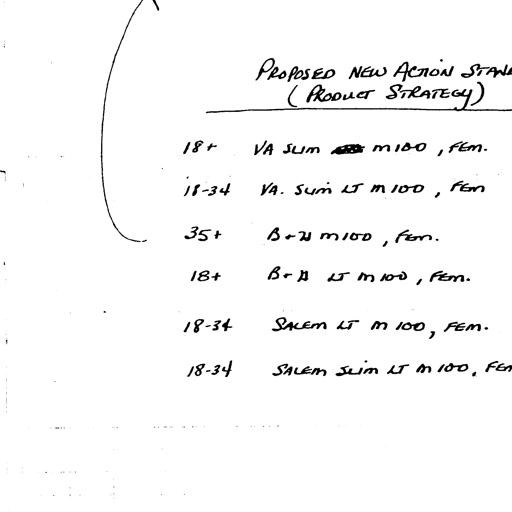 PROPOSED NEW ACTION STAN
(PRODUCT STRATEGY)
18+ VA SLIM M100, FEM.
18-34 VA. SLIM LT M100, FEM
35+ B+H M100, FEM.
18+ B+H LT M100, FEM.
18-34 SALEM LT M100, FEM.
18-34 SALEM SLIM LT M100, FEM